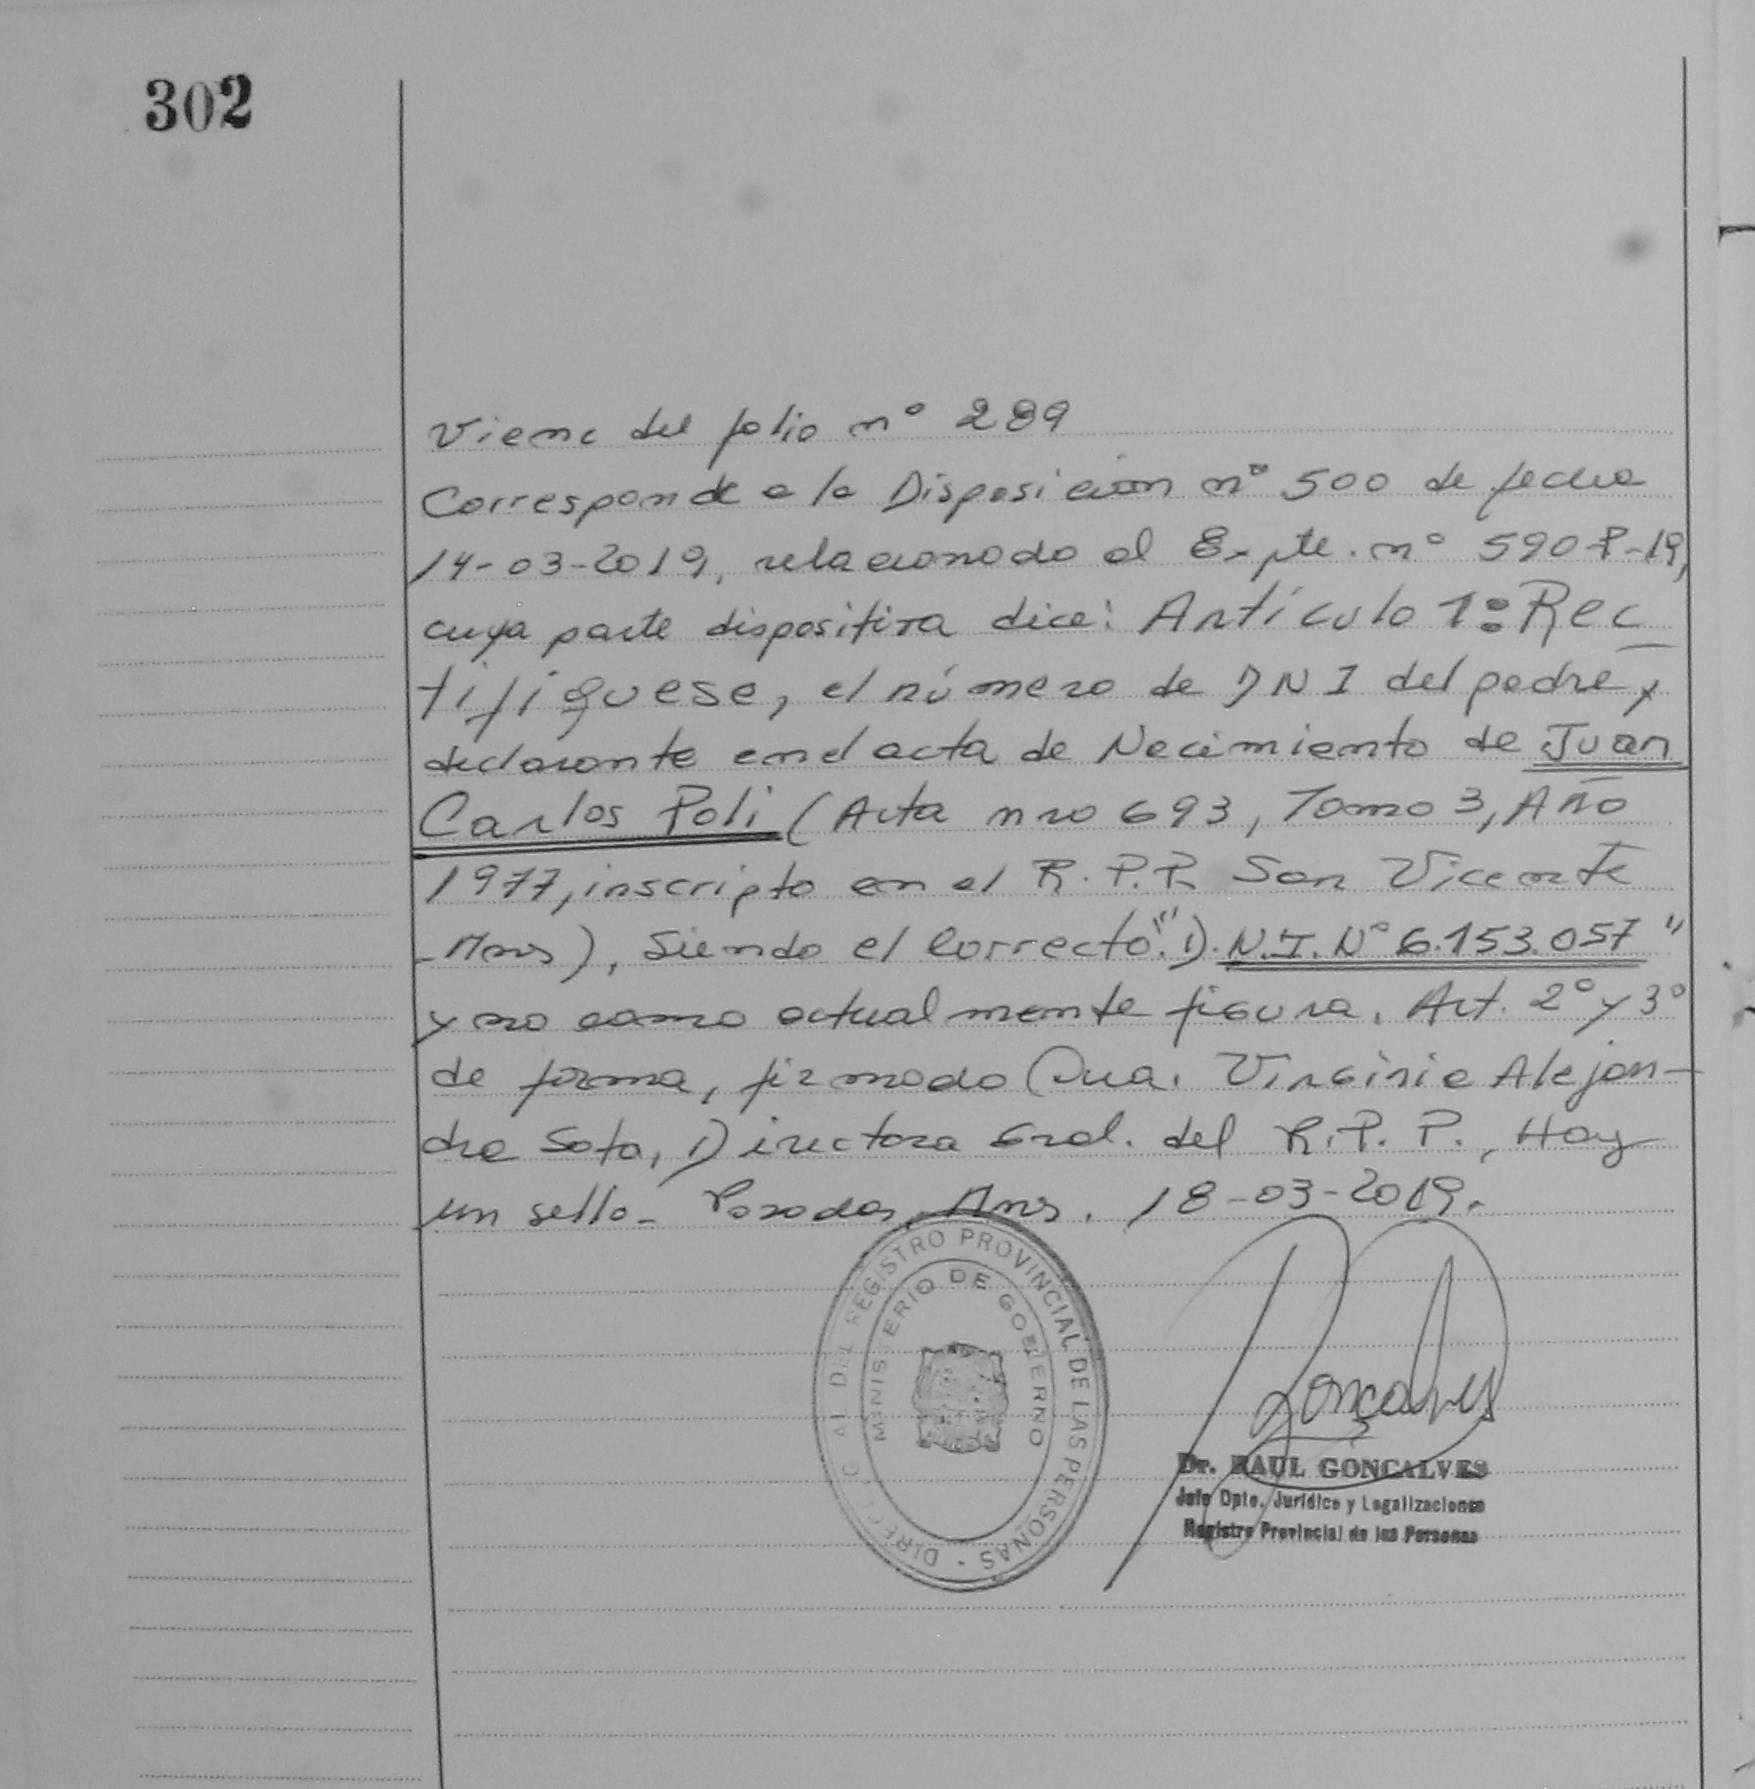 302
Viene del folio nº 289
Corresponde a la Disposicion nº 500 de fecha
14-03-2019, relacionado al Expte. nº 590-P-19,
cuya parte dispositiva dice: Artículo 1º: Rec
tifiquese, el número de DNI del padre y
declarante en el acta de Nacimiento de Juan
Carlos Poli (Acta nro 693, Tomo 3, Año
1977, inscripto en el R.P.P. San Vicente
-Mns), Siendo el Correcto: "D.N.I. Nº 6.153.057"
y no como actualmente figura. Art. 2º y 3º
de forma, firmado Dra. Virginia Alejan-
dra Soto, Directora Gral. del R.P.P., Hay
un sello- Posadas, Mns. 18-03-2019.
DEL REGISTRO PROVINCIAL DE LAS PERSONAS -
MINISTERIO DE GOBIERNO
Gonçalves
Dr. RAUL GONÇALVES
Jefe Dpto. Jurídico y Legalizaciones
Registro Provincial de las Personas